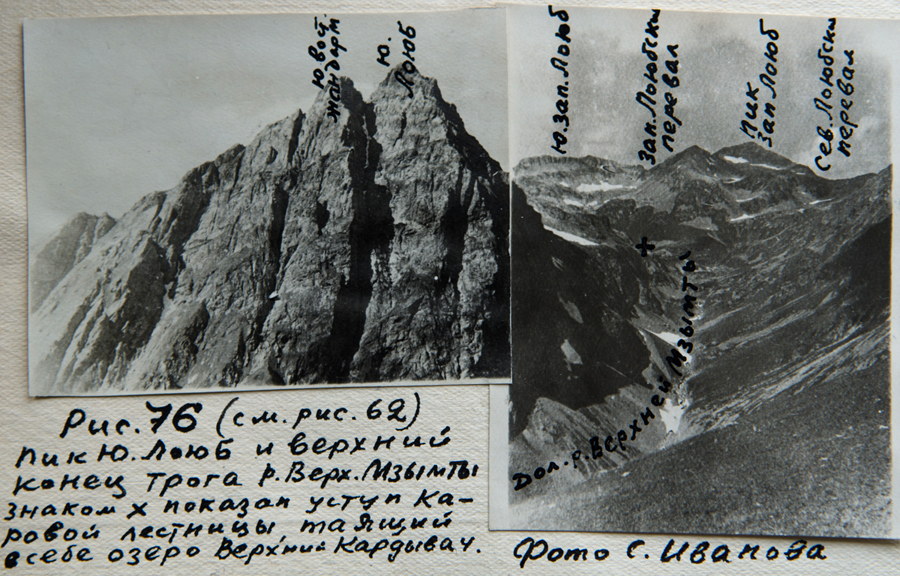 Ю. вост.
жандарм
Ю.
Лоюб
Ю. зап. Лоюб
Зап. Лоюбский
перевал
пик
Зап. Лоюб
Сев. Лоюбский
перевал
х
Дол. р. Верхней Мзымты
Рис. 76 (см. рис. 62)
пик Ю. Лоюб и верхний
конец трога р. Верх. Мзымты
знаком х показан уступ ка-
ровой лестницы таящий
в себе озеро Верхний Кардывач.
Фото С. Иванова